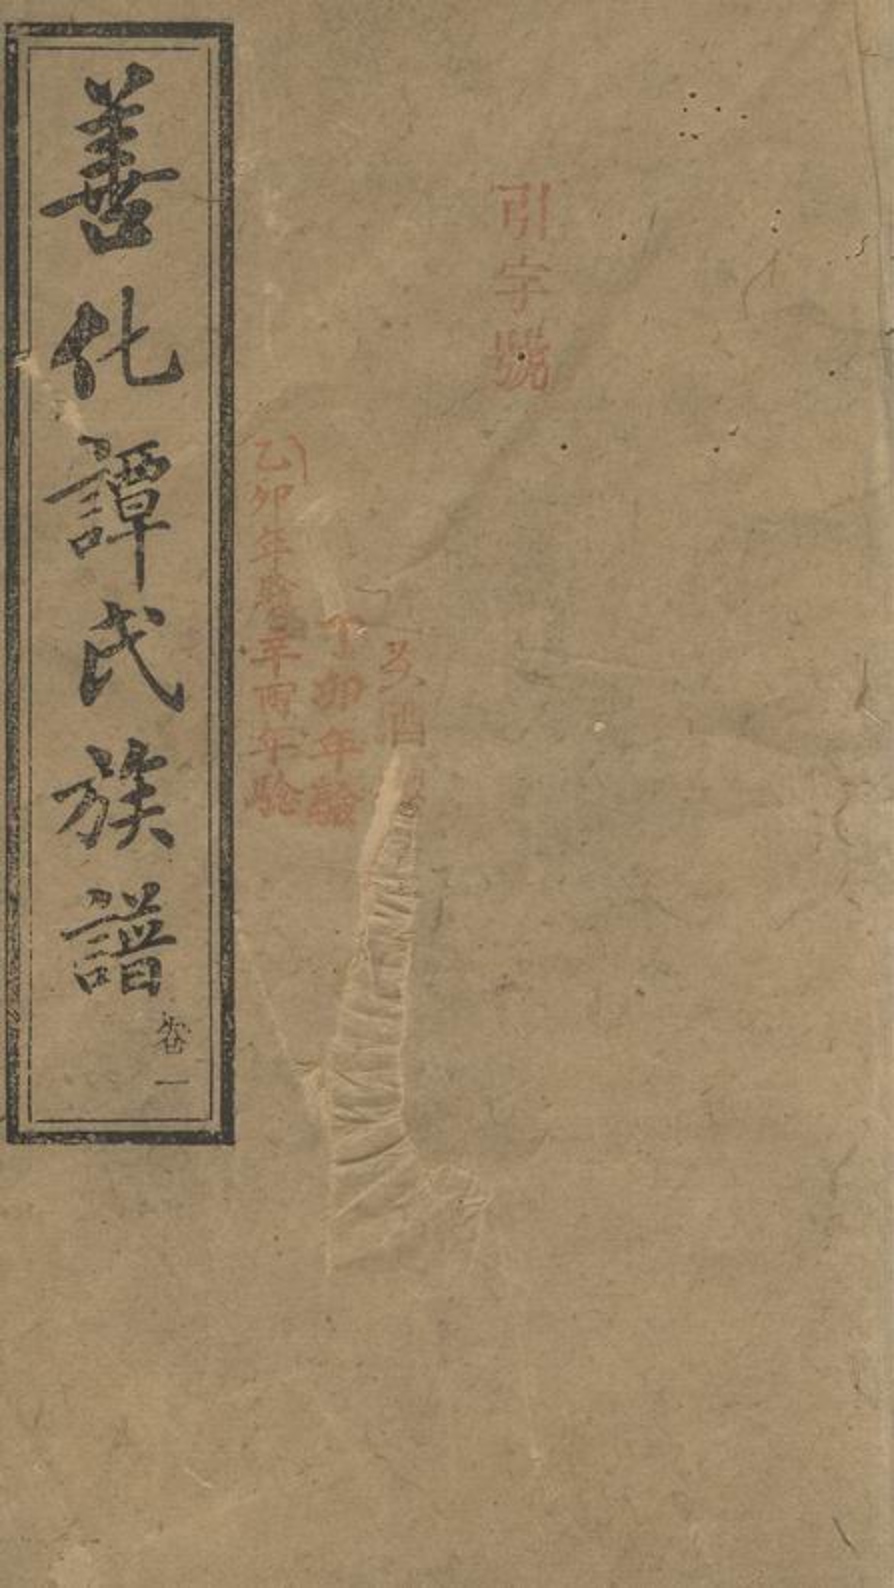 引字號
酉
丁卯年驗
乙卯年驗辛酉年驗
善化譚氏族譜
卷一